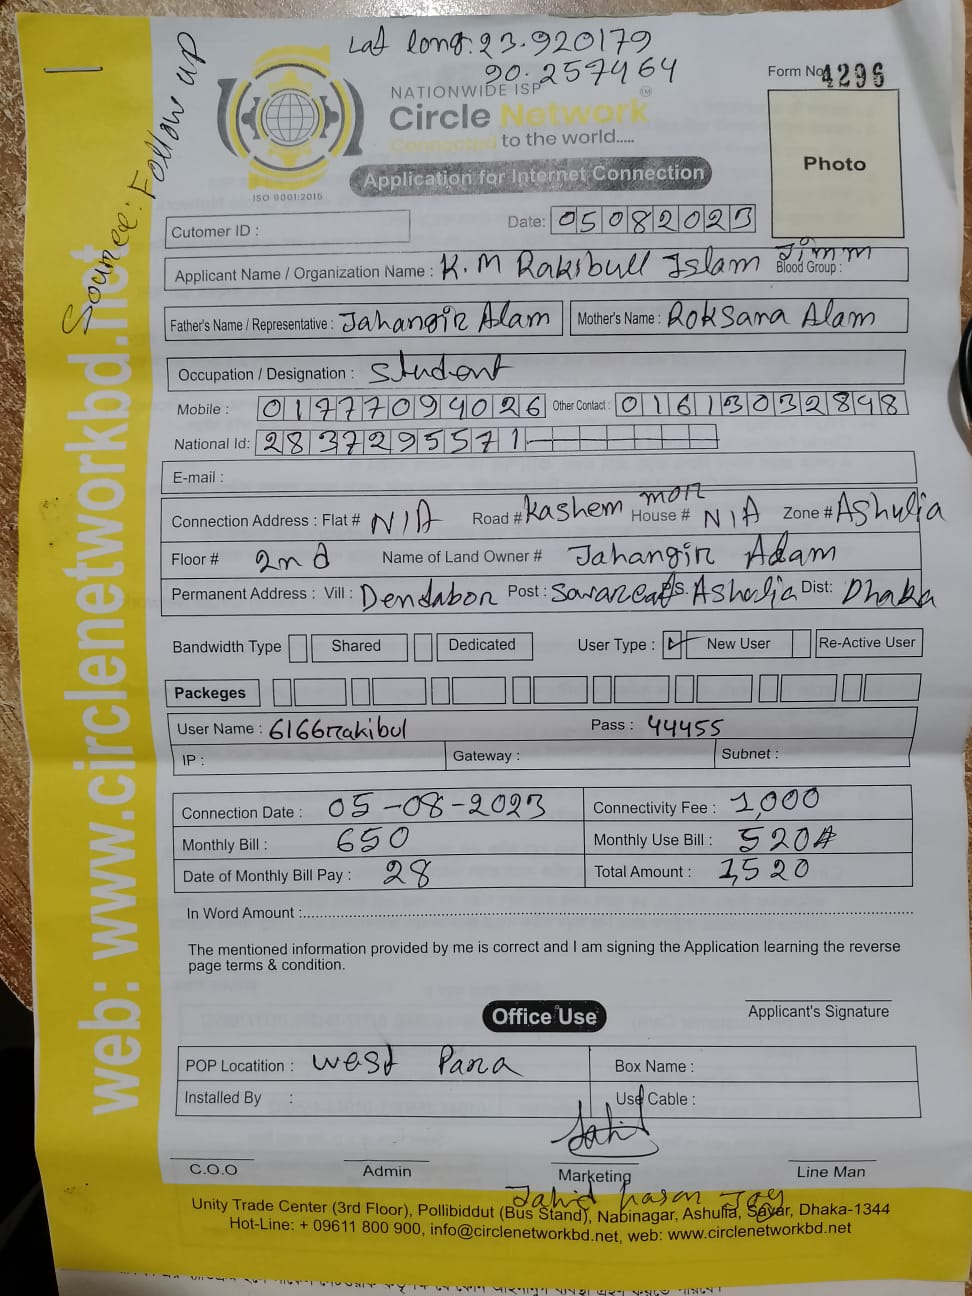 Lat long: 23.920179
90.257464
Source: Follow up
NATIONWIDE ISP
Circle Network TM
Connected to the world.....
ISO 9001:2015
Application for Internet Connection
Form No 4296
Photo
Cutomer ID :
Date: 05082023
Applicant Name / Organization Name : K.M Rakibull Islam Jimm
Blood Group :
Father's Name / Representative : Jahangir Alam Mother's Name : Roksana Alam
Occupation / Designation : Student
Mobile : 01777094026 Other Contact : 01613032898
National Id: 2837295571
E-mail :
Connection Address : Flat # N/A Road # Kashem morr House # N/A Zone # Ashulia
Floor # 2nd Name of Land Owner # Jahangir Alam
Permanent Address : Vill : Dendabor Post : P.S. Ashulia Dist: Dhaka
Bandwidth Type Shared Dedicated User Type : New User Re-Active User
Packeges
User Name : 6166rakibul Pass : 44455
IP : Gateway : Subnet :
Connection Date : 05-08-2023 Connectivity Fee : 1,000
Monthly Bill : 650 Monthly Use Bill : 520
Date of Monthly Bill Pay : 28 Total Amount : 1,520
In Word Amount :
The mentioned information provided by me is correct and I am signing the Application learning the reverse
page terms & condition.
Applicant's Signature
Office Use
POP Locatition : West Para Box Name :
Installed By : Used Cable :
C.O.O Admin Marketing Line Man
Jahid hasan Joy
Unity Trade Center (3rd Floor), Pollibiddut (Bus Stand), Nabinagar, Ashulia, Savar, Dhaka-1344
Hot-Line: + 09611 800 900, info@circlenetworkbd.net, web: www.circlenetworkbd.net
web: www.circlenetworkbd.net